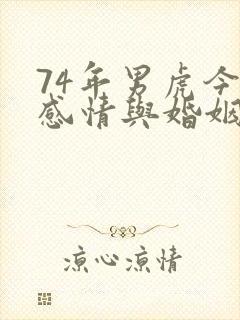 74年男虎今
感情與婚姻
涼心涼情